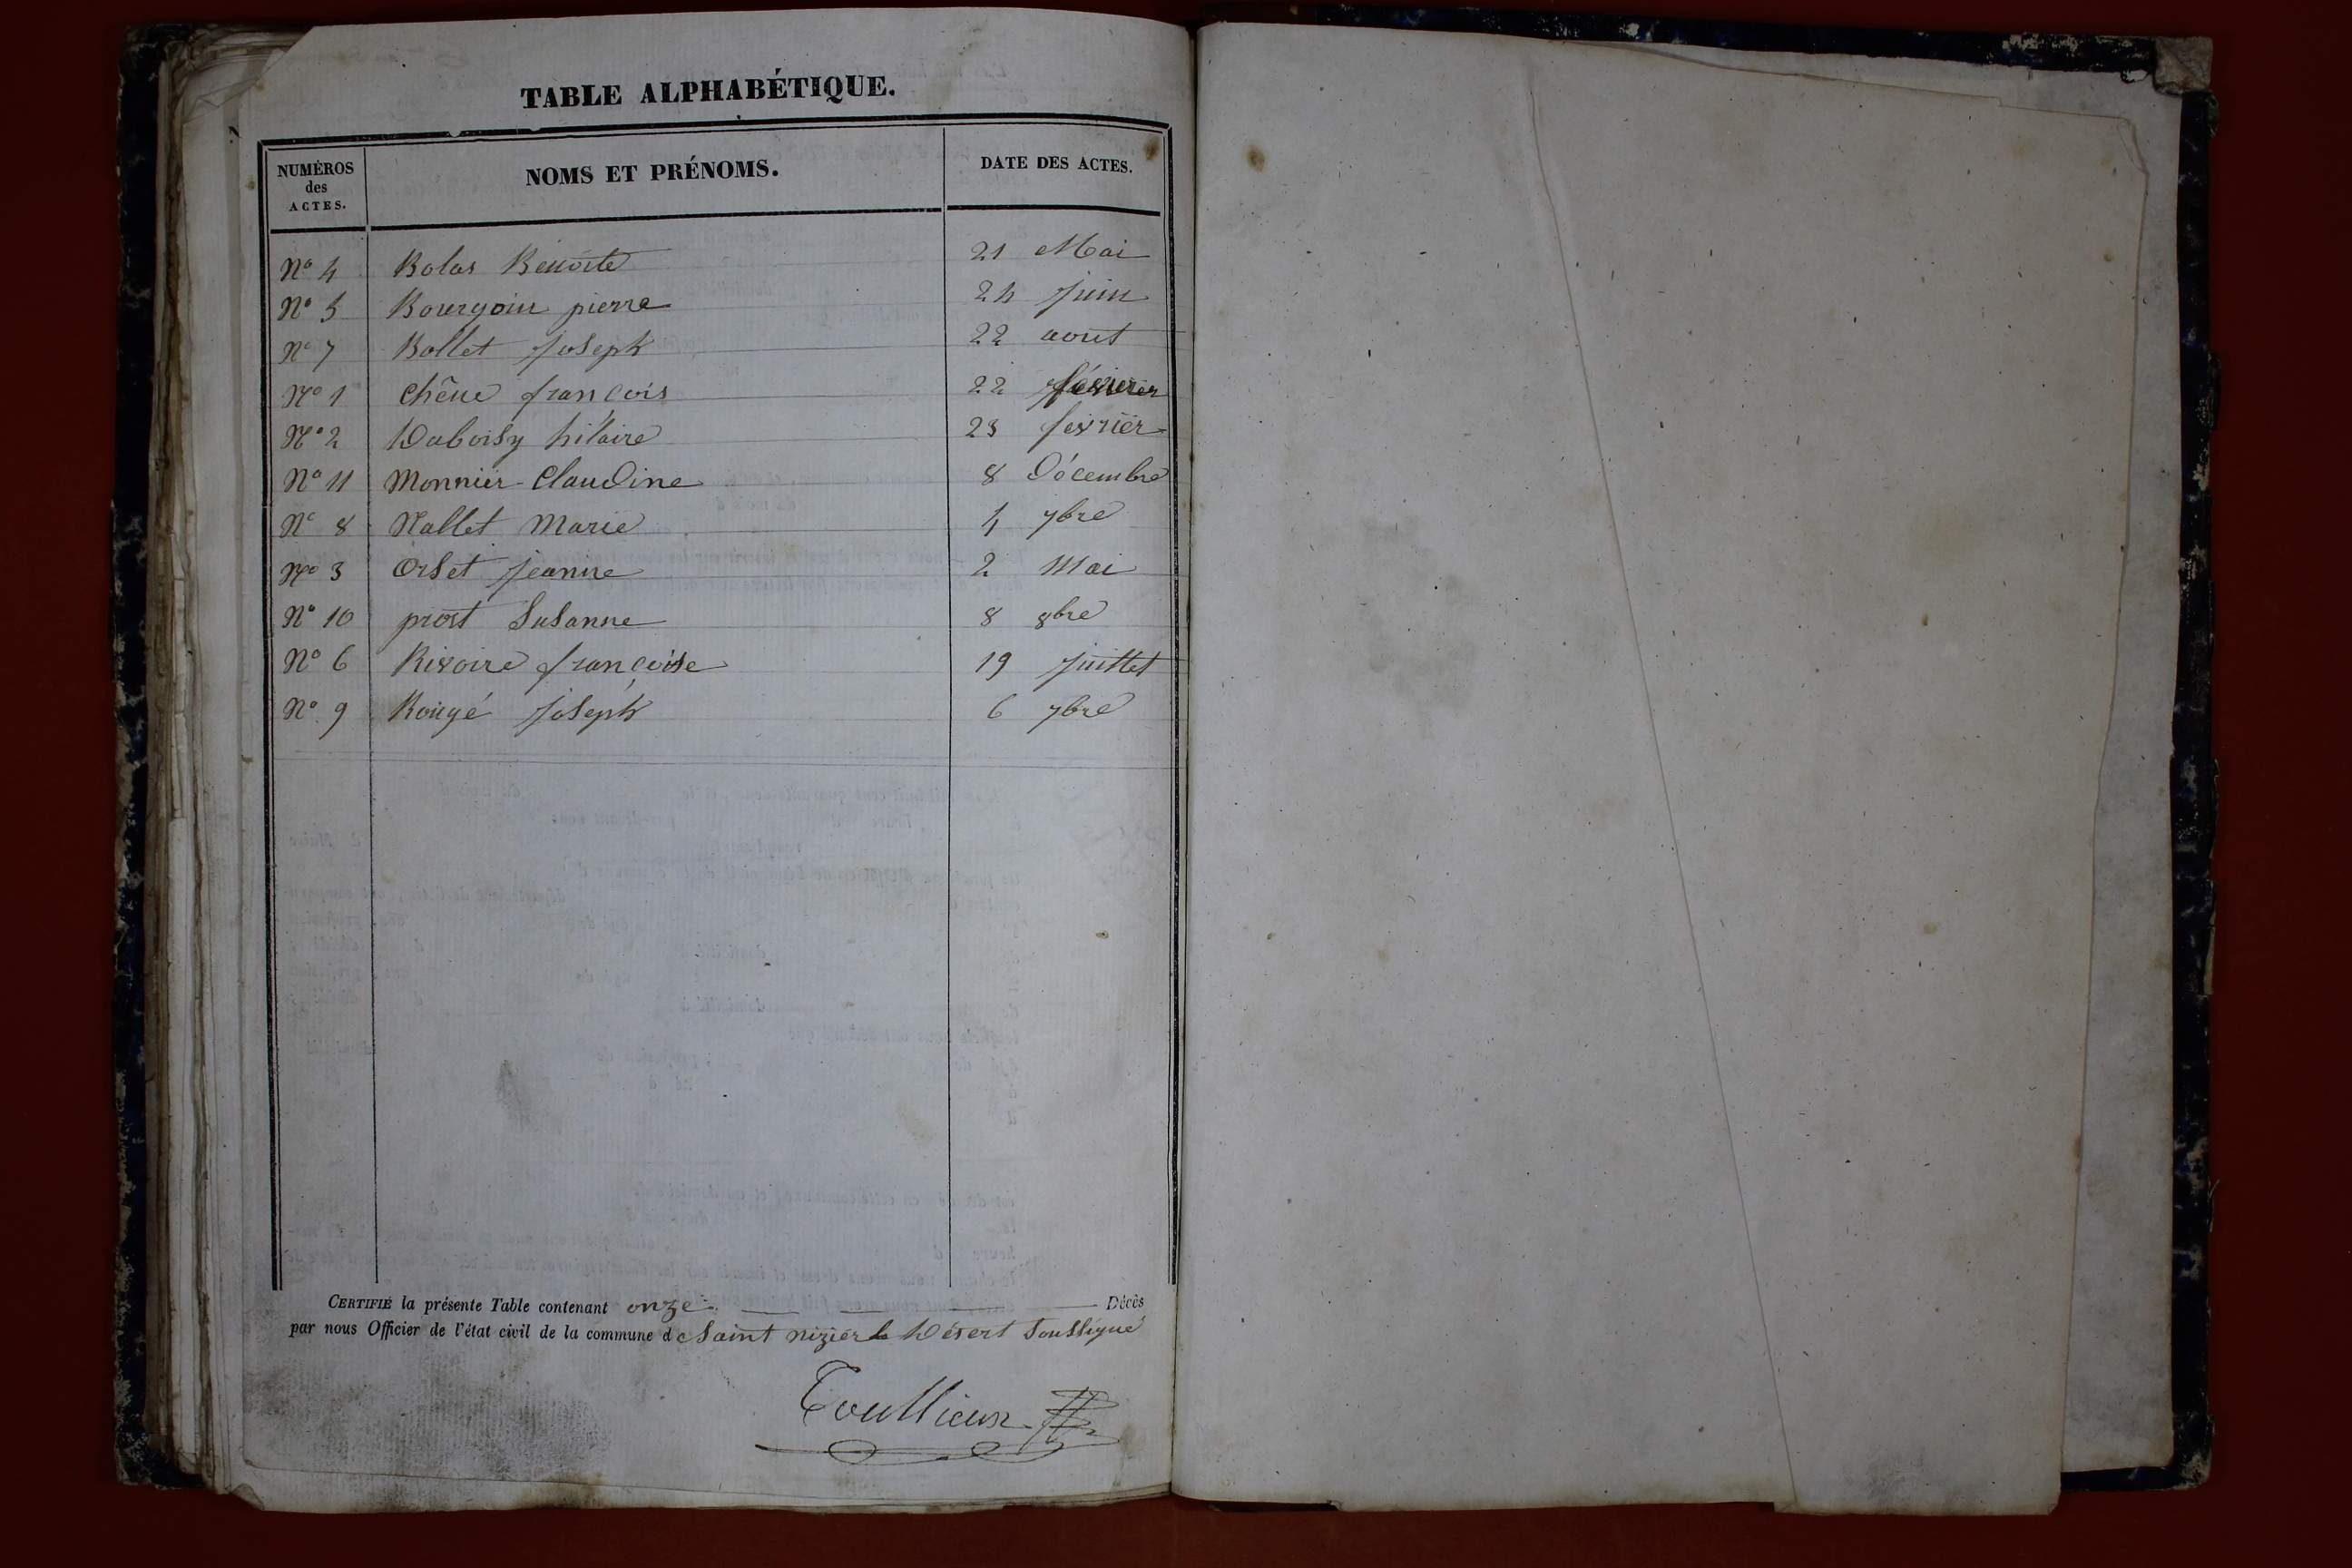 TABLE ALPHABÉTIQUE.
NUMÉROS des ACTES. NOMS ET PRÉNOMS. DATE DES ACTES.
Nº 4 Bolas Benoite 21 Mai
Nº 5 Bourgoin pierre 24 juin
Nº 7 Bollet joseph 22 aout
Nº 1 Chêne françois 22 février
Nº 2 Duboisy hilaire 23 fevrier
Nº 11 Monnier Claudine 8 Décembre
Nº 8 Nallet Marie 4 7bre
Nº 3 Orset jeanne 2 Mai
Nº 10 prost Susanne 8 8bre
Nº 6 Rivoire françoise 19 juillet
Nº 9 Rougé joseph 6 7bre
CERTIFIÉ la présente Table contenant onze Décès
par nous Officier de l'état civil de la commune de Saint nizier le Désert Soussigné